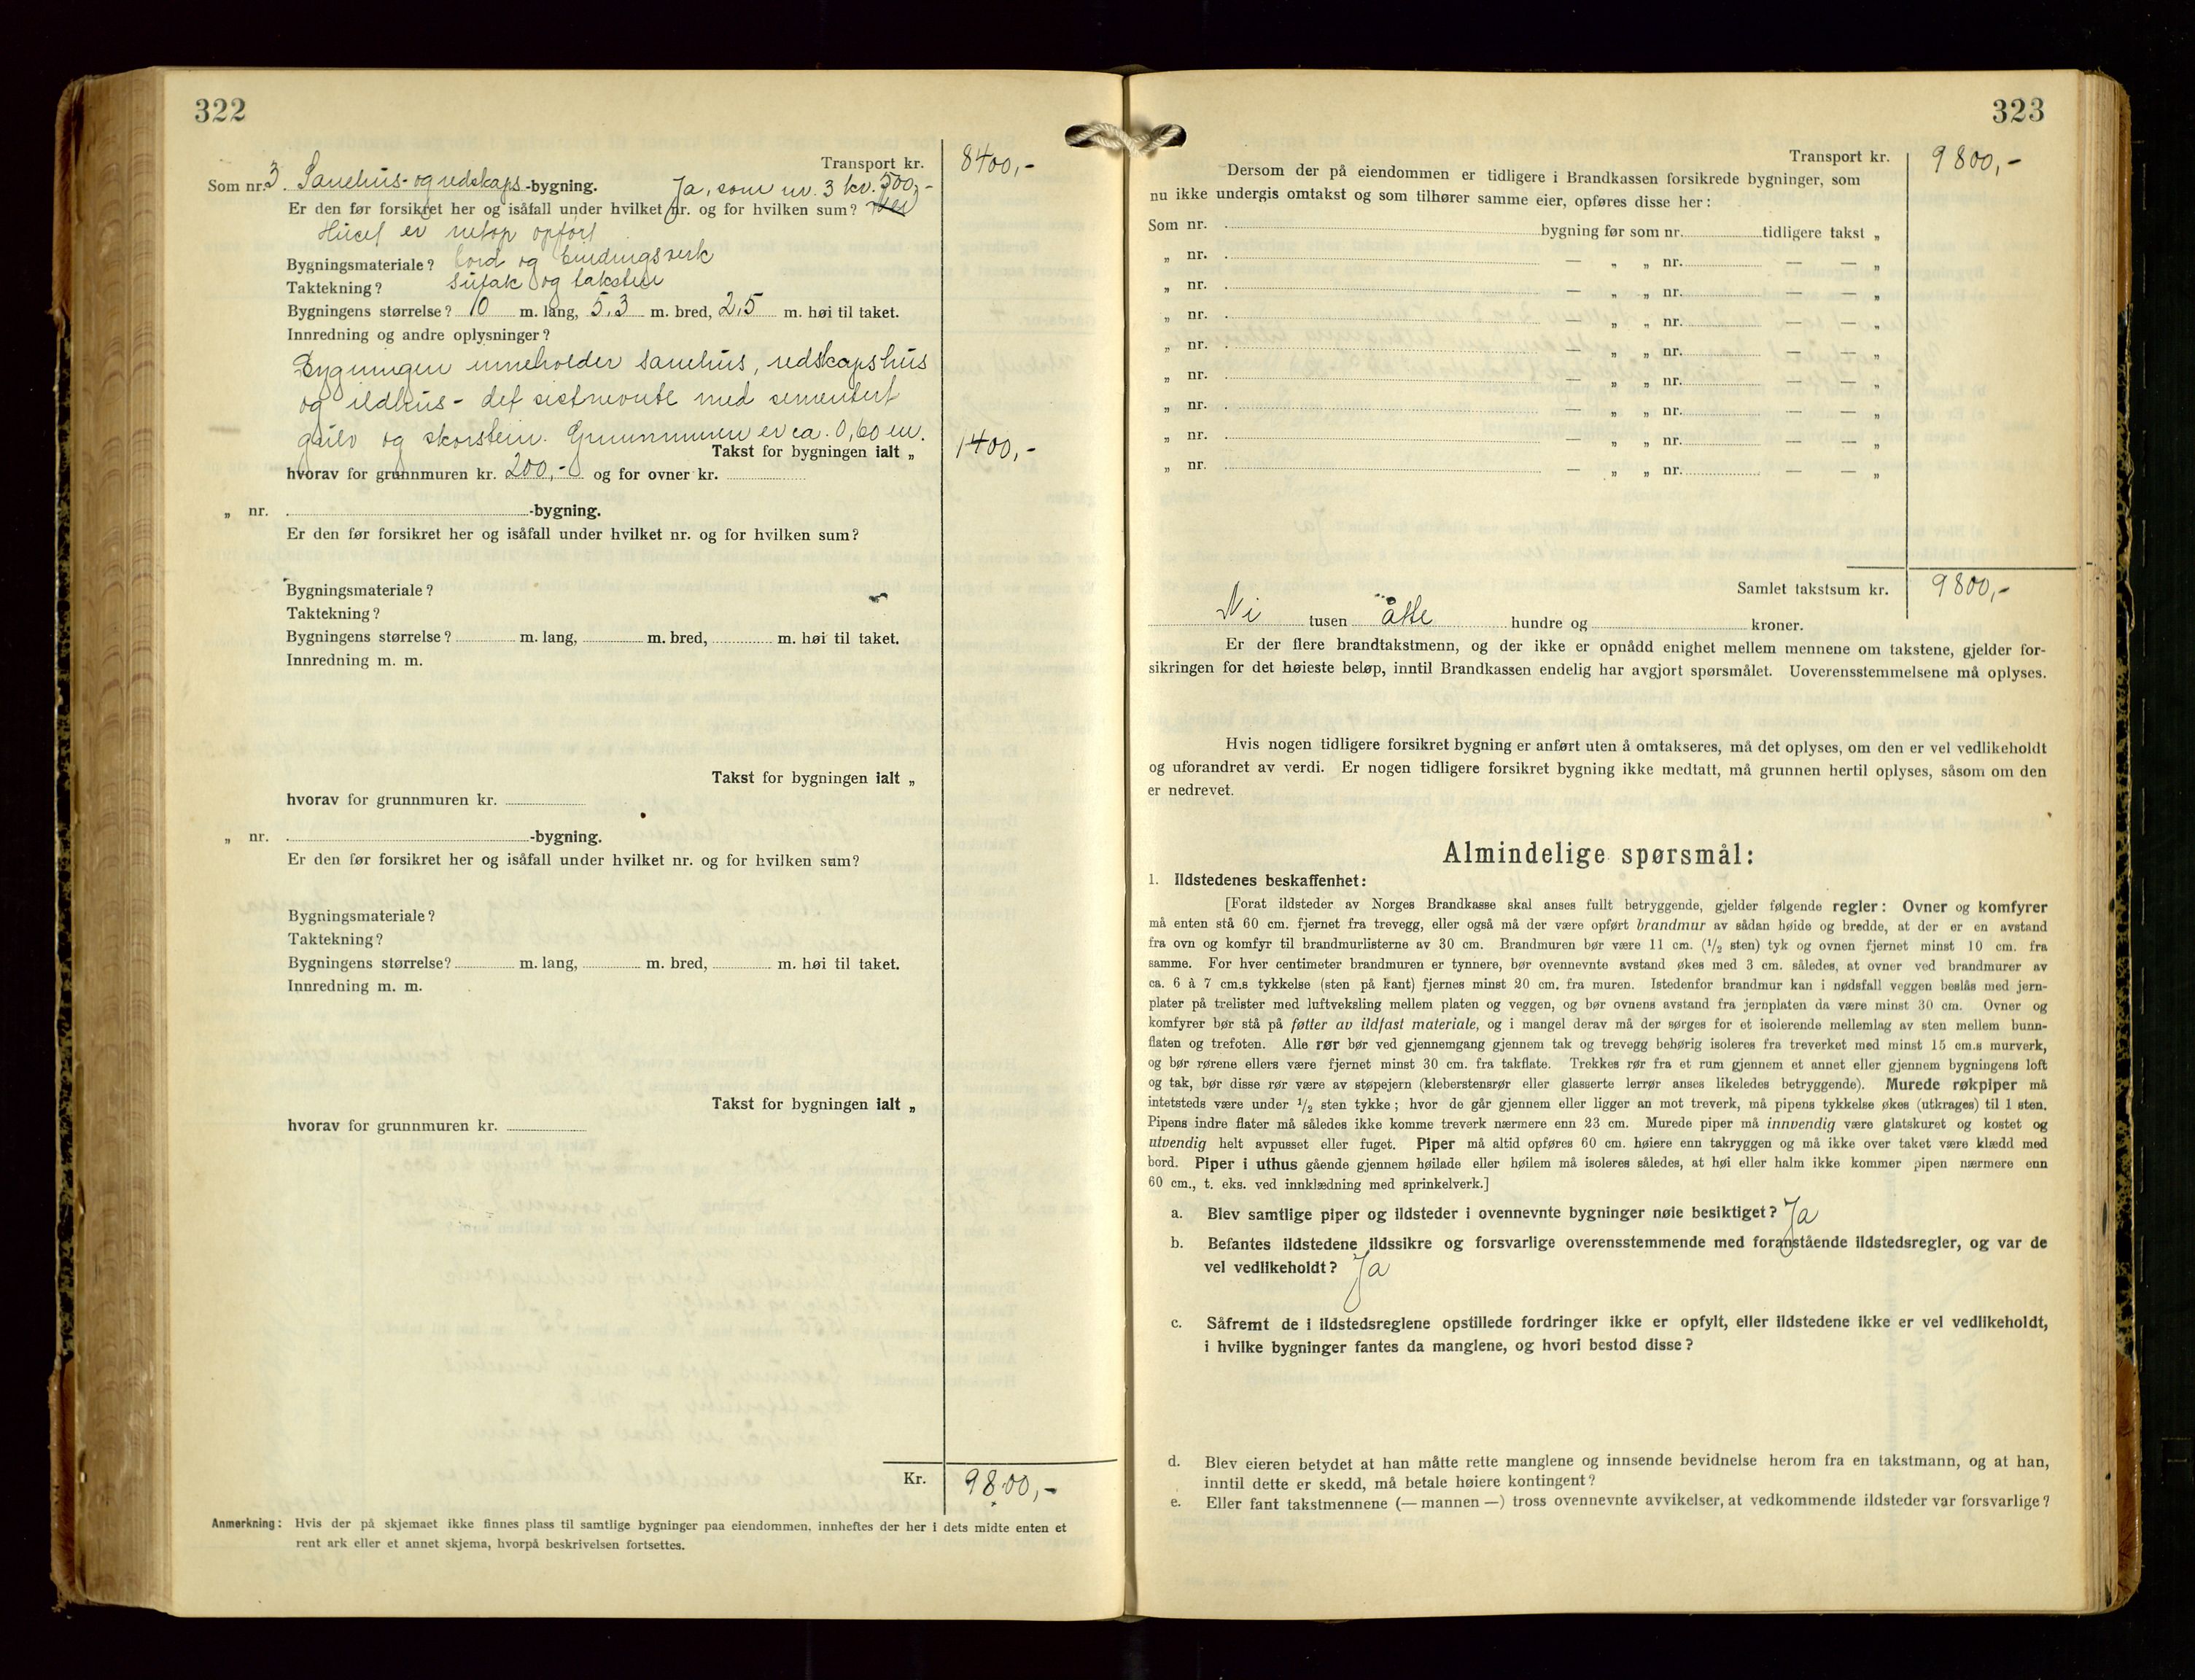 322
Transport kr. 8400,-
Som nr. 3. Sauehus- og redskaps -bygning. Ja, som nr. 3 kr. 500,-
Er den før forsikret her og isåfall under hvilket nr. og for hvilken sum? Nei
Huset er netop opført
Bygningsmateriale? bord og bindingsverk
Taktekning? sutak og taksten
Bygningens størrelse? 10 m. lang, 5,3 m. bred, 2,5 m. høi til taket.
Innredning og andre oplysninger?
Bygningen inneholder sauehus, redskapshus
og ildhus - det sistnevnte med sementert
gulv og skorstein. Grunnmuren er ca. 0,60 m.
Takst for bygningen ialt „ 1400,-
hvorav for grunnmuren kr. 200,- og for ovner kr.
„ nr. -bygning.
Er den før forsikret her og isåfall under hvilket nr. og for hvilken sum?
Bygningsmateriale?
Taktekning?
Bygningens størrelse? m. lang, m. bred, m. høi til taket.
Innredning m. m.
Takst for bygningen ialt „
hvorav for grunnmuren kr.
„ nr. -bygning.
Er den før forsikret her og isåfall under hvilket nr. og for hvilken sum?
Bygningsmateriale?
Taktekning?
Bygningens størrelse? m. lang, m. bred, m. høi til taket.
Innredning m. m.
Takst for bygningen ialt „
hvorav for grunnmuren kr.
Kr. 9800,-
Anmerkning: Hvis der på skjemaet ikke finnes plass til samtlige bygninger paa eiendommen, innheftes der her i dets midte enten et
rent ark eller et annet skjema, hvorpå beskrivelsen fortsettes.
323
Transport kr. 9800,-
Dersom der på eiendommen er tidligere i Brandkassen forsikrede bygninger, som
nu ikke undergis omtakst og som tilhører samme eier, opføres disse her:
Som nr. bygning før som nr. tidligere takst „
„ nr. — „ „ nr. — — „
„ nr. — „ „ nr. — — „
„ nr. — „ „ nr. — — „
„ nr. — „ „ nr. — — „
„ nr. — „ „ nr. — — „
„ nr. — „ „ nr. — — „
„ nr. — „ „ nr. — — „
„ nr. — „ „ nr. — — „
Samlet takstsum kr. 9800,-
Ni tusen åtte hundre og kroner.
Er der flere brandtakstmenn, og der ikke er opnådd enighet mellem mennene om takstene, gjelder for-
sikringen for det høieste beløp, inntil Brandkassen endelig har avgjort spørsmålet. Uoverensstemmelsene må oplyses.
Hvis nogen tidligere forsikret bygning er anført uten å omtakseres, må det oplyses, om den er vel vedlikeholdt
og uforandret av verdi. Er nogen tidligere forsikret bygning ikke medtatt, må grunnen hertil oplyses, såsom om den
er nedrevet.
Almindelige spørsmål:
1. Ildstedenes beskaffenhet:
[Forat ildsteder av Norges Brandkasse skal anses fullt betryggende, gjelder følgende regler: Ovner og komfyrer
må enten stå 60 cm. fjernet fra trevegg, eller også må der være opført brandmur av sådan høide og bredde, at der er en avstand
fra ovn og komfyr til brandmurlisterne av 30 cm. Brandmuren bør være 11 cm. (1/2 sten) tyk og ovnen fjernet minst 10 cm. fra
samme. For hver centimeter brandmuren er tynnere, bør ovennevnte avstand økes med 3 cm. således, at ovner ved brandmurer av
ca. 6 à 7 cm.s tykkelse (sten på kant) fjernes minst 20 cm. fra muren. Istedenfor brandmur kan i nødsfall veggen beslås med jern-
plater på trelister med luftveksling mellem platen og veggen, og bør ovnens avstand fra jernplaten da være minst 30 cm. Ovner og
komfyrer bør stå på føtter av ildfast materiale, og i mangel derav må der sørges for et isolerende mellemlag av sten mellem bunn-
flaten og trefoten. Alle rør bør ved gjennemgang gjennem tak og trevegg behørig isoleres fra treverket med minst 15 cm.s murverk,
og bør rørene ellers være fjernet minst 30 cm. fra takflate. Trekkes rør fra et rum gjennem et annet eller gjennem bygningens loft
og tak, bør disse rør være av støpejern (kleberstensrør eller glasserte lerrør anses likeledes betryggende). Murede røkpiper må
intetsteds være under 1/2 sten tykke; hvor de går gjennem eller ligger an mot treverk, må pipens tykkelse økes (utkrages) til 1 sten.
Pipens indre flater må således ikke komme treverk nærmere enn 23 cm. Murede piper må innvendig være glatskuret og kostet og
utvendig helt avpusset eller fuget. Piper må altid opføres 60 cm. høiere enn takryggen og må ikke over taket være klædd med
bord. Piper i uthus gående gjennem høilade eller høilem må isoleres således, at høi eller halm ikke kommer pipen nærmere enn
60 cm., t. eks. ved innklædning med sprinkelverk.]
a. Blev samtlige piper og ildsteder i ovennevnte bygninger nøie besiktiget? Ja
b. Befantes ildstedene ildssikre og forsvarlige overensstemmende med foranstående ildstedsregler, og var de
vel vedlikeholdt? Ja
c. Såfremt de i ildstedsreglene opstillede fordringer ikke er opfylt, eller ildstedene ikke er vel vedlikeholdt,
i hvilke bygninger fantes da manglene, og hvori bestod disse?
d. Blev eieren betydet at han måtte rette manglene og innsende bevidnelse herom fra en takstmann, og at han,
inntil dette er skedd, må betale høiere kontingent?
e. Eller fant takstmennene (— mannen —) tross ovennevnte avvikelser, at vedkommende ildsteder var forsvarlige?